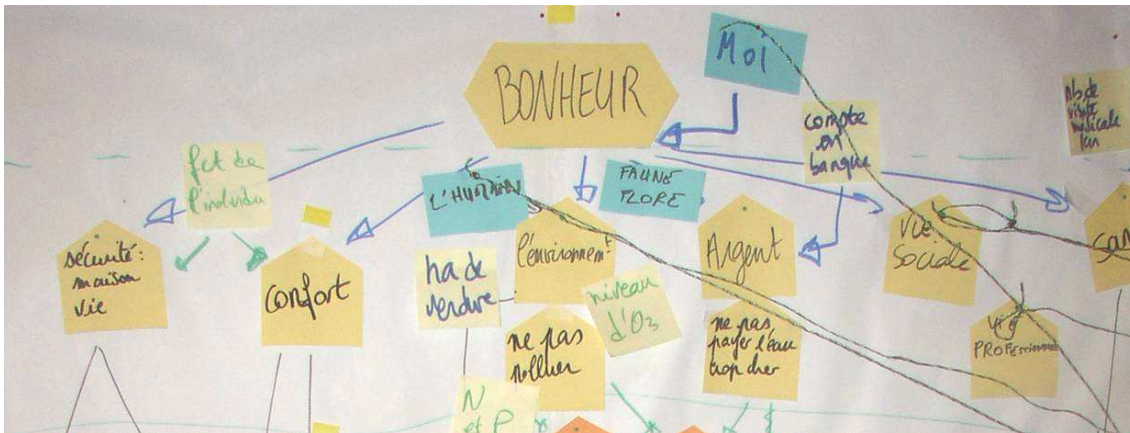 BONHEUR
Moi
compte
en
banque
nb de
visite
médicale
/an
fct de
l'individu
L'HUMAIN
FAUNE
FLORE
sécurité:
maison
vie
confort
ha de
verdure
l'environnemt
Argent
vie
sociale
niveau
d'O3
ne pas
polluer
ne pas
payer l'eau
trop cher
vie
PROFessionnelle
N
et P